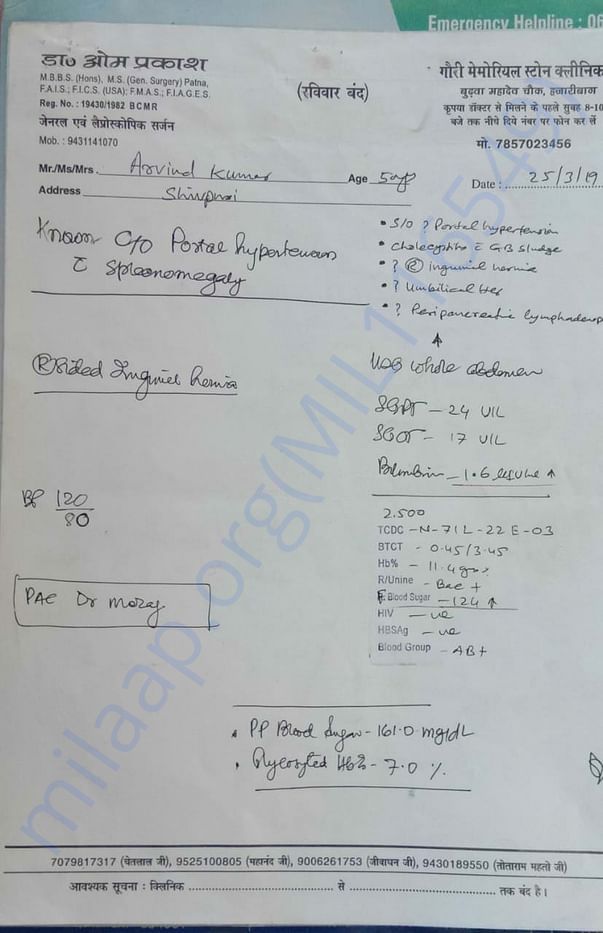 Emergency Helpline : 06
डा० ओम प्रकाश
M.B.B.S. (Hons), M.S. (Gen. Surgery) Patna,
F.A.I.S.; F.I.C.S. (USA); F.M.A.S.; F.I.A.G.E.S.
Reg. No. : 19430/1982 BCMR
जेनरल एवं लैप्रोस्कोपिक सर्जन
Mob. : 9431141070
(रविवार बंद)
गौरी मेमोरियल स्टोन क्लीनिक
बुढ़वा महादेव चौक, हजारीबाग
कृपया डॉक्टर से मिलने के पहले सुबह 8-10
बजे तक नीचे दिये नंबर पर फोन कर लें
मो. 7857023456
Mr./Ms/Mrs. Arvind Kumar Age
Date : 25/3/19
Address
Known C/O Portal hypertension
c̄ Spleenomegaly
• S/O ? Portal hypertension
• Cholecystitis c̄ GB sludge
• ? Ⓡ inguinal hernia
• ? Umbilical
• ? Peripancreatic lymphadenop
USG whole abdomen
Ⓡ Sided Inguinal hernia
SGPT - 24 U/L
SGOT - 17 U/L
1.6 ↑
BP 120/80
2.500
TCDC - N - 71 L - 22 E - 03
BTCT - 0.45/3.45
Hb% - 11.4
R/Unine - Bac +
F. Blood Sugar - 124 ↑
HIV - ve
HBSAg - ve
Blood Group - AB+
PAC Dr
• PP Blood Sugar - 161.0 mg/dL
• Glycosylted Hb% - 7.0 %.
7079817317 (चेतलाल जी), 9525100805 (महानंद जी), 9006261753 (जीवाधन जी), 9430189550 (तोताराम महतो जी)
आवश्यक सूचना : क्लिनिक ........ से ........ तक बंद है।
milaap.org(MIL1116549)